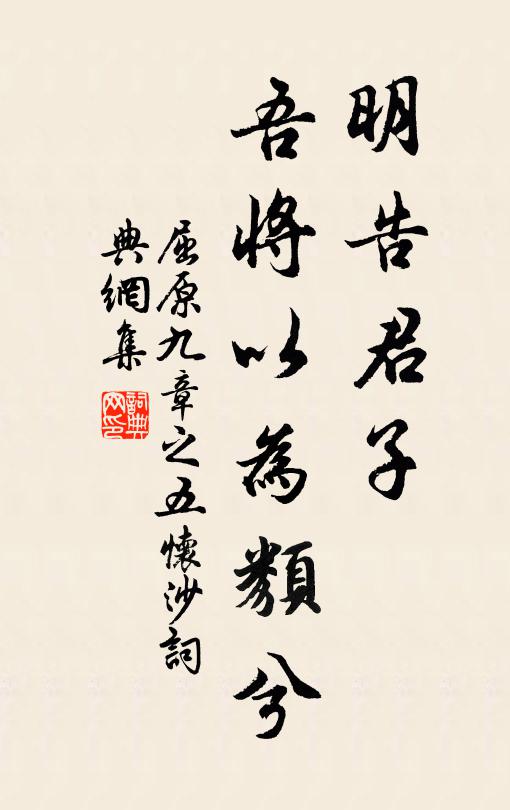 明告君子
吾將以為類兮
屈原九章之五懷沙詞
典網集
詞典網印